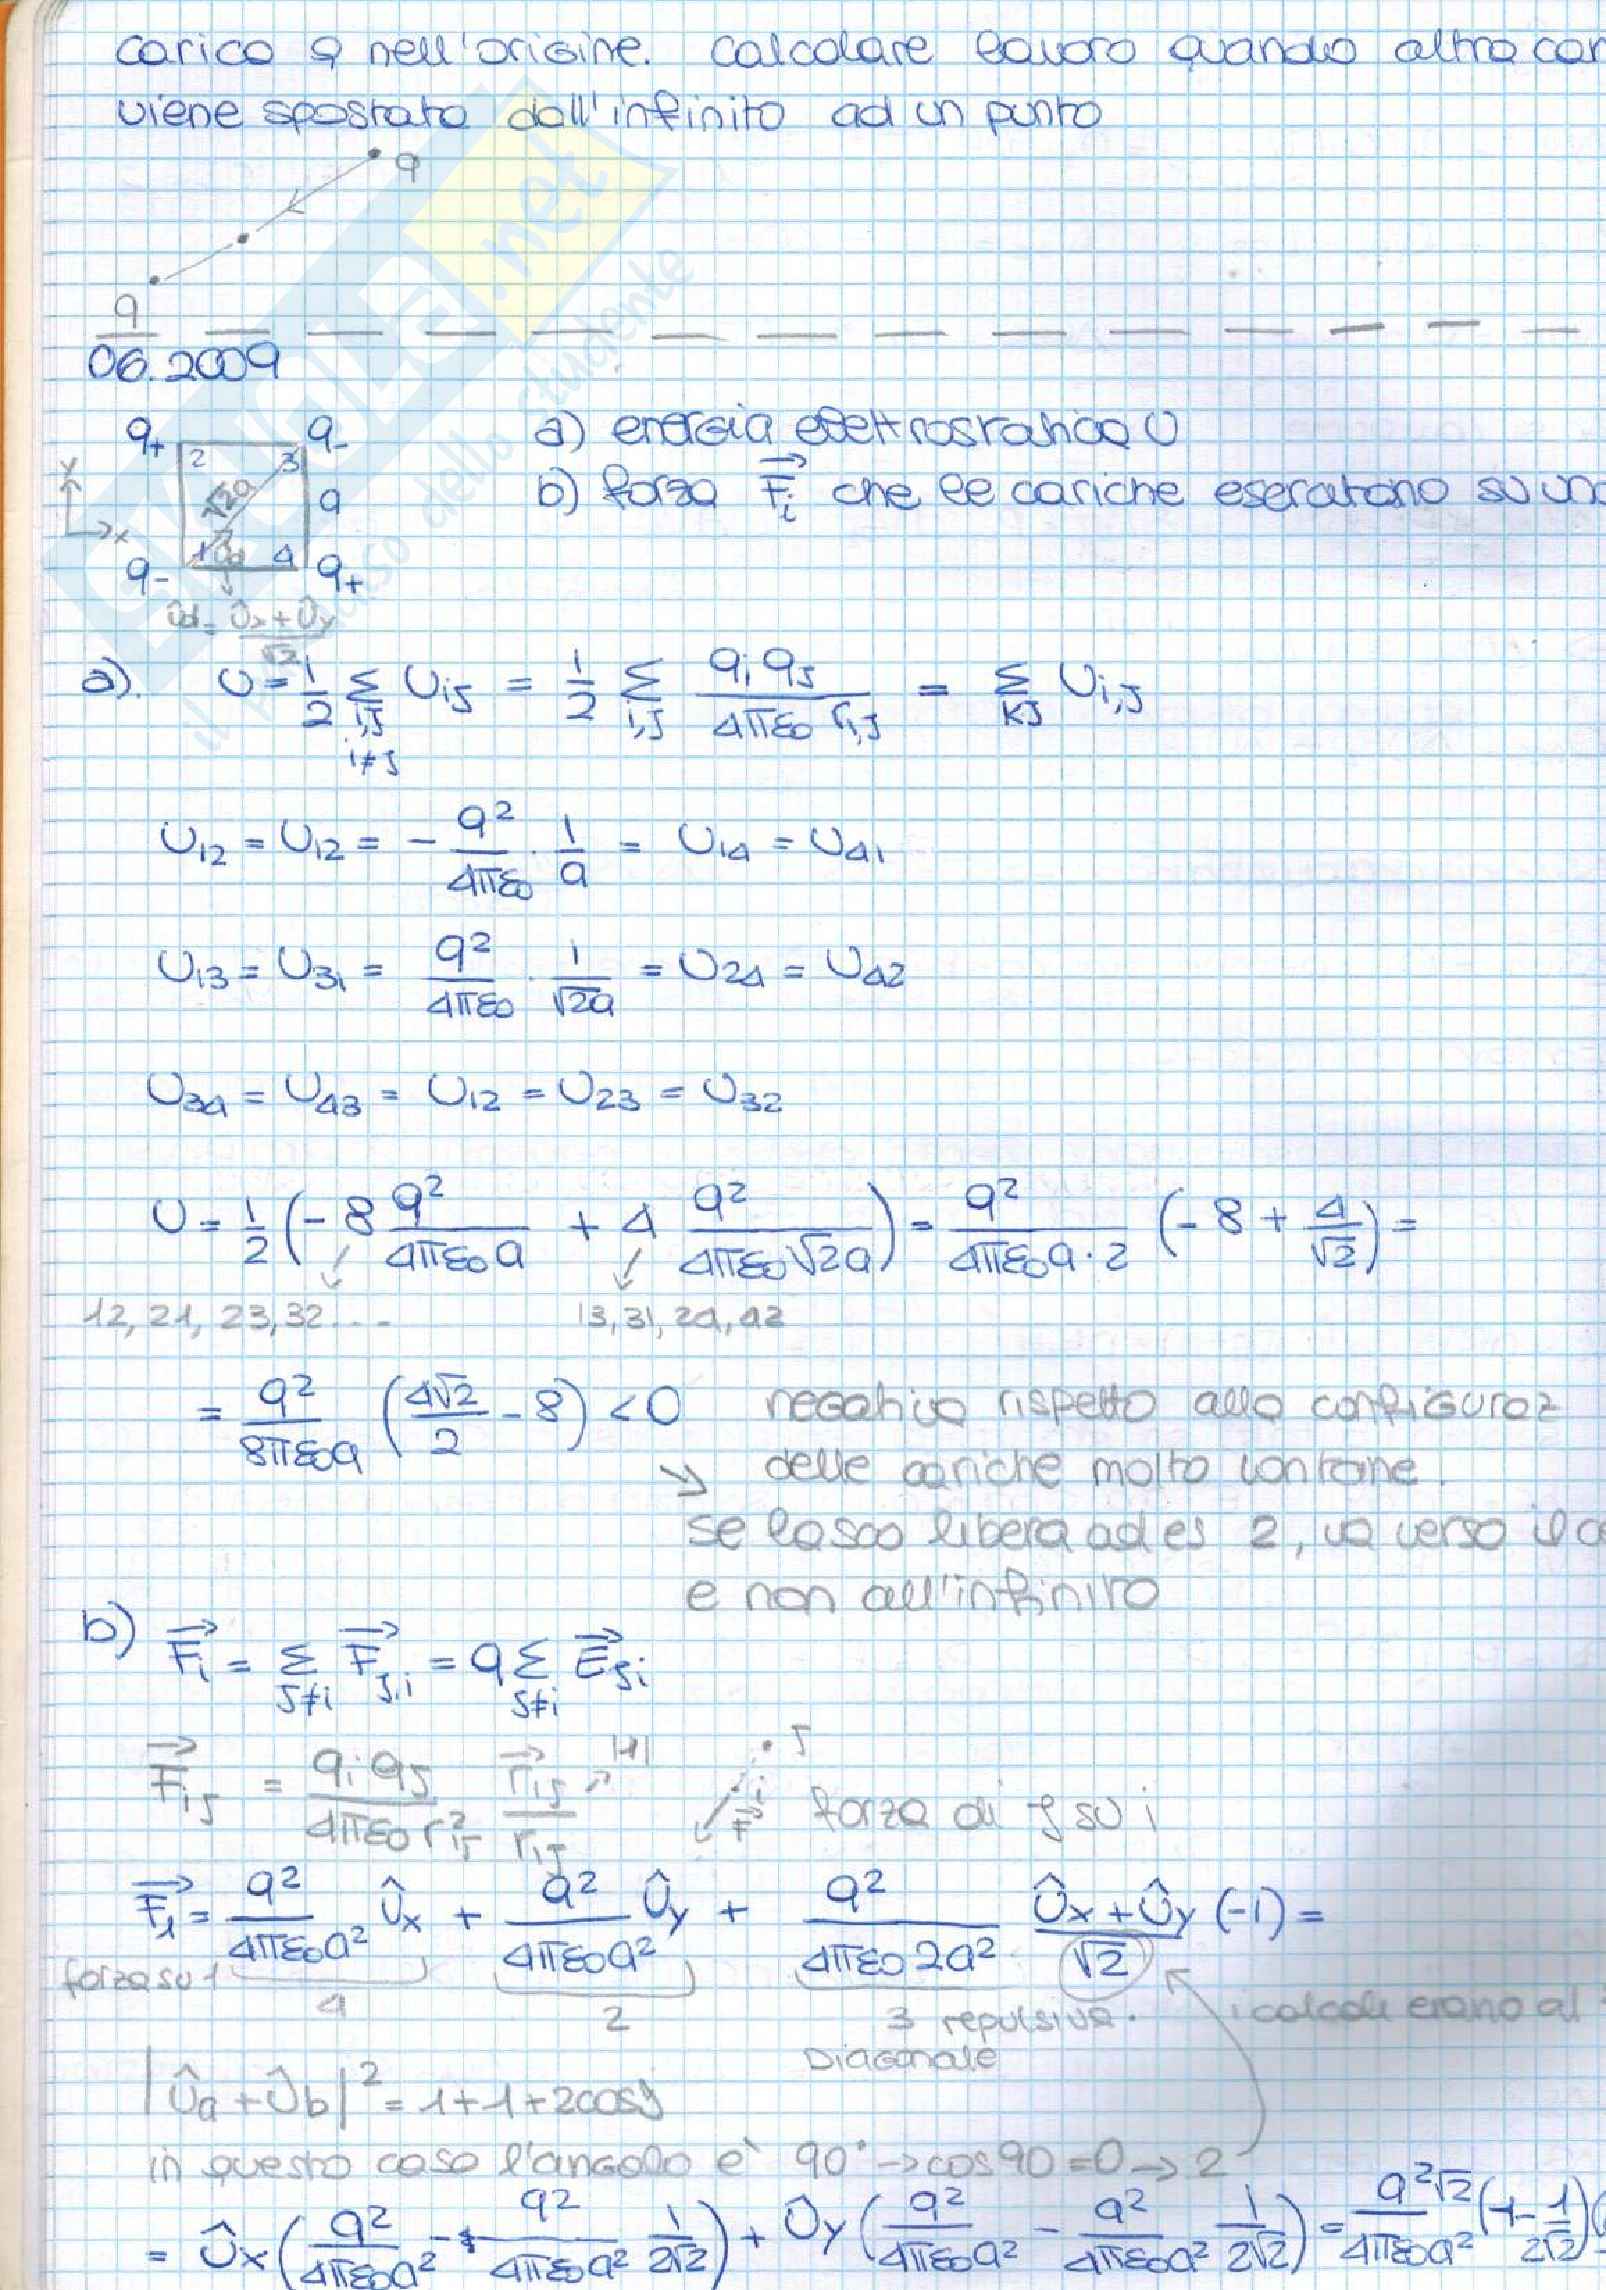 carica q nell'origine. Calcolare lavoro quando altra car
viene spostata dall'infinito ad un punto
q
q
06.2009
q+ 2 3 q-
a) energia elettrostatica U
y √2a a
b) forza F⃗i che le cariche esercitano su una
x
q- 1 ûd 4 q+
ûd = (ûx + ûy)/√2
a). U = 1/2 Σ i,j i≠j Uij = 1/2 Σ i,j qi qj / 4πε0 ri,j = Σ i<j Ui,j
U12 = U12 = - q²/4πε0 · 1/a = U14 = U41
U13 = U31 = q²/4πε0 · 1/√2a = U24 = U42
U34 = U43 = U12 = U23 = U32
U = 1/2 (-8 q²/4πε0a + 4 q²/4πε0√2a) = q²/4πε0a·2 (-8 + 4/√2) =
12, 21, 23, 32... 13, 31, 24, 42
= q²/8πε0a (4√2/2 - 8) < 0 negativa rispetto alla configuraz
→ delle cariche molto lontane.
se lascio libera ad es 2, va verso il
e non all'infinito
b) F⃗i = Σ j≠i F⃗j,i = q Σ j≠i E⃗ji
F⃗ij = qi qj / 4πε0 r²ij r⃗ij/rij |1| j i F⃗ forza di j su i
F⃗1 = q²/4πε0a² ûx + q²/4πε0a² ûy + q²/4πε0 2a² (ûx + ûy)/√2 (-1) =
forza su 1 4 2 3 repulsiva. i calcoli erano al
Diagonale
|ûa + ûb|² = 1+1+2cosϑ
in questo caso l'angolo è 90° → cos90 = 0 → 2
= ûx (q²/4πε0a² - q²/4πε0a² 1/2√2) + ûy (q²/4πε0a² - q²/4πε0a² 1/2√2) = q²√2/4πε0a² (1 - 1/2√2)(
SKUOLA.net
il paradiso dello studente